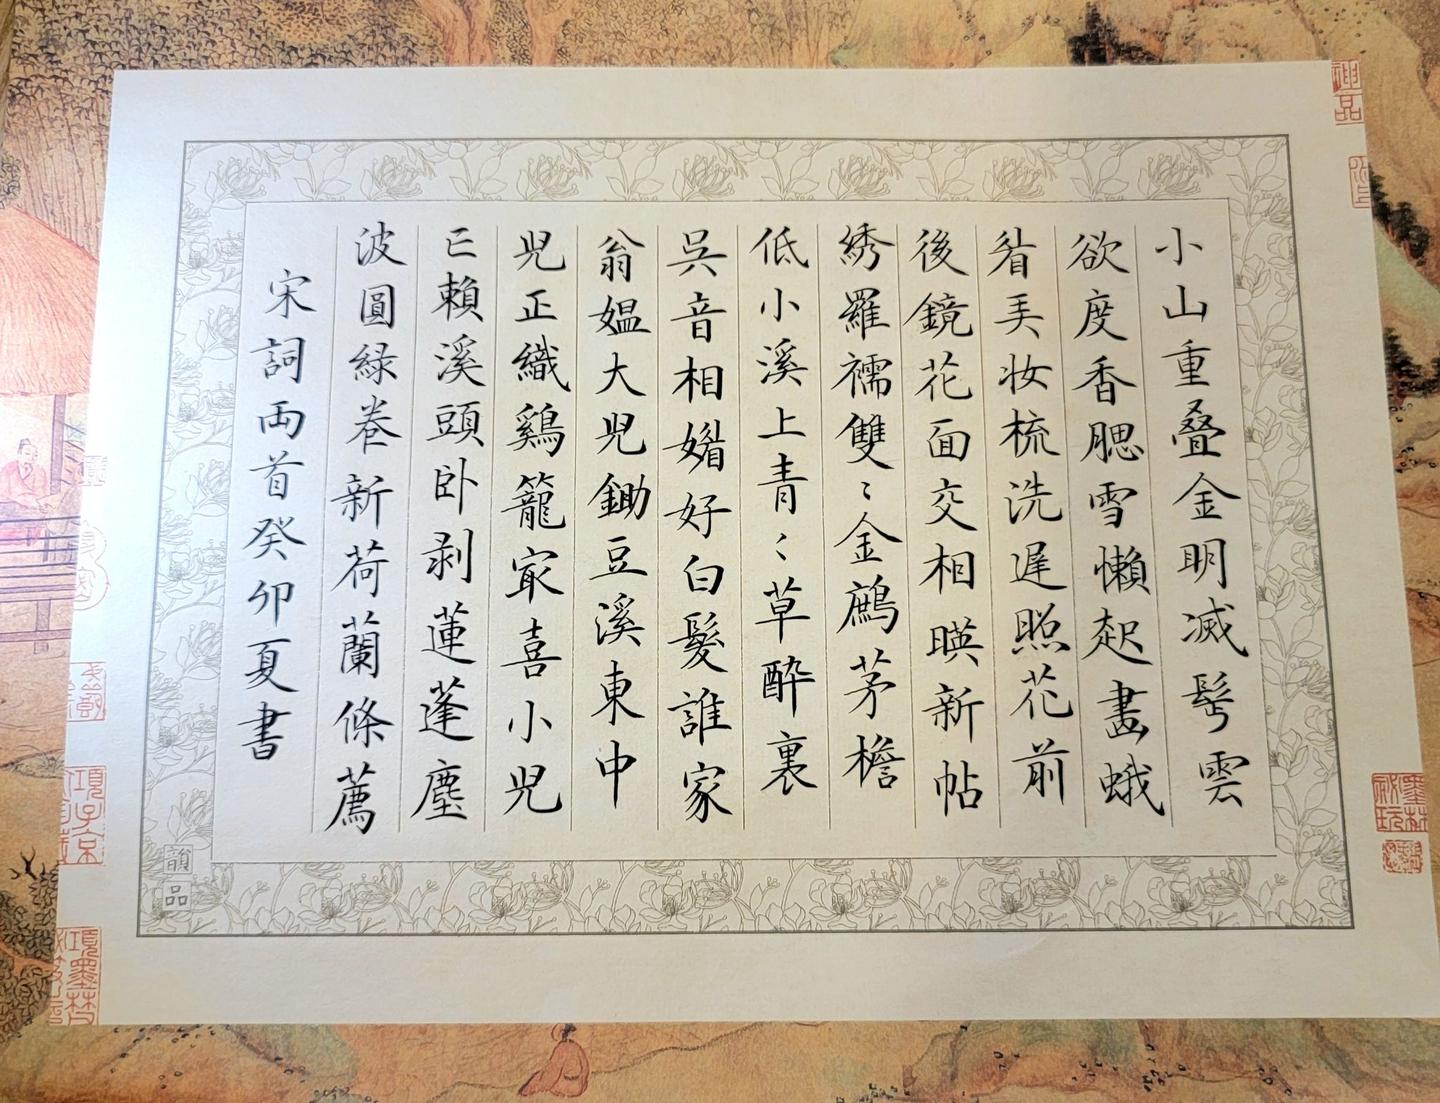 小山重叠金明滅鬂雲
欲度香腮雪懶起畫蛾
眉弄妆梳洗遲照花前
後鏡花面交相暎新帖
綉羅襦雙〻金鷓茅檐
低小溪上青〻草醉裏
吳音相媚好白髮誰家
翁媼大兒鋤豆溪東中
兒正織鷄籠㝡喜小兒
亡賴溪頭卧剥蓮蓬塵
波圓緑卷新荷蘭條薦
宋詞両首癸卯夏書
韻品
神品
墨林秘玩